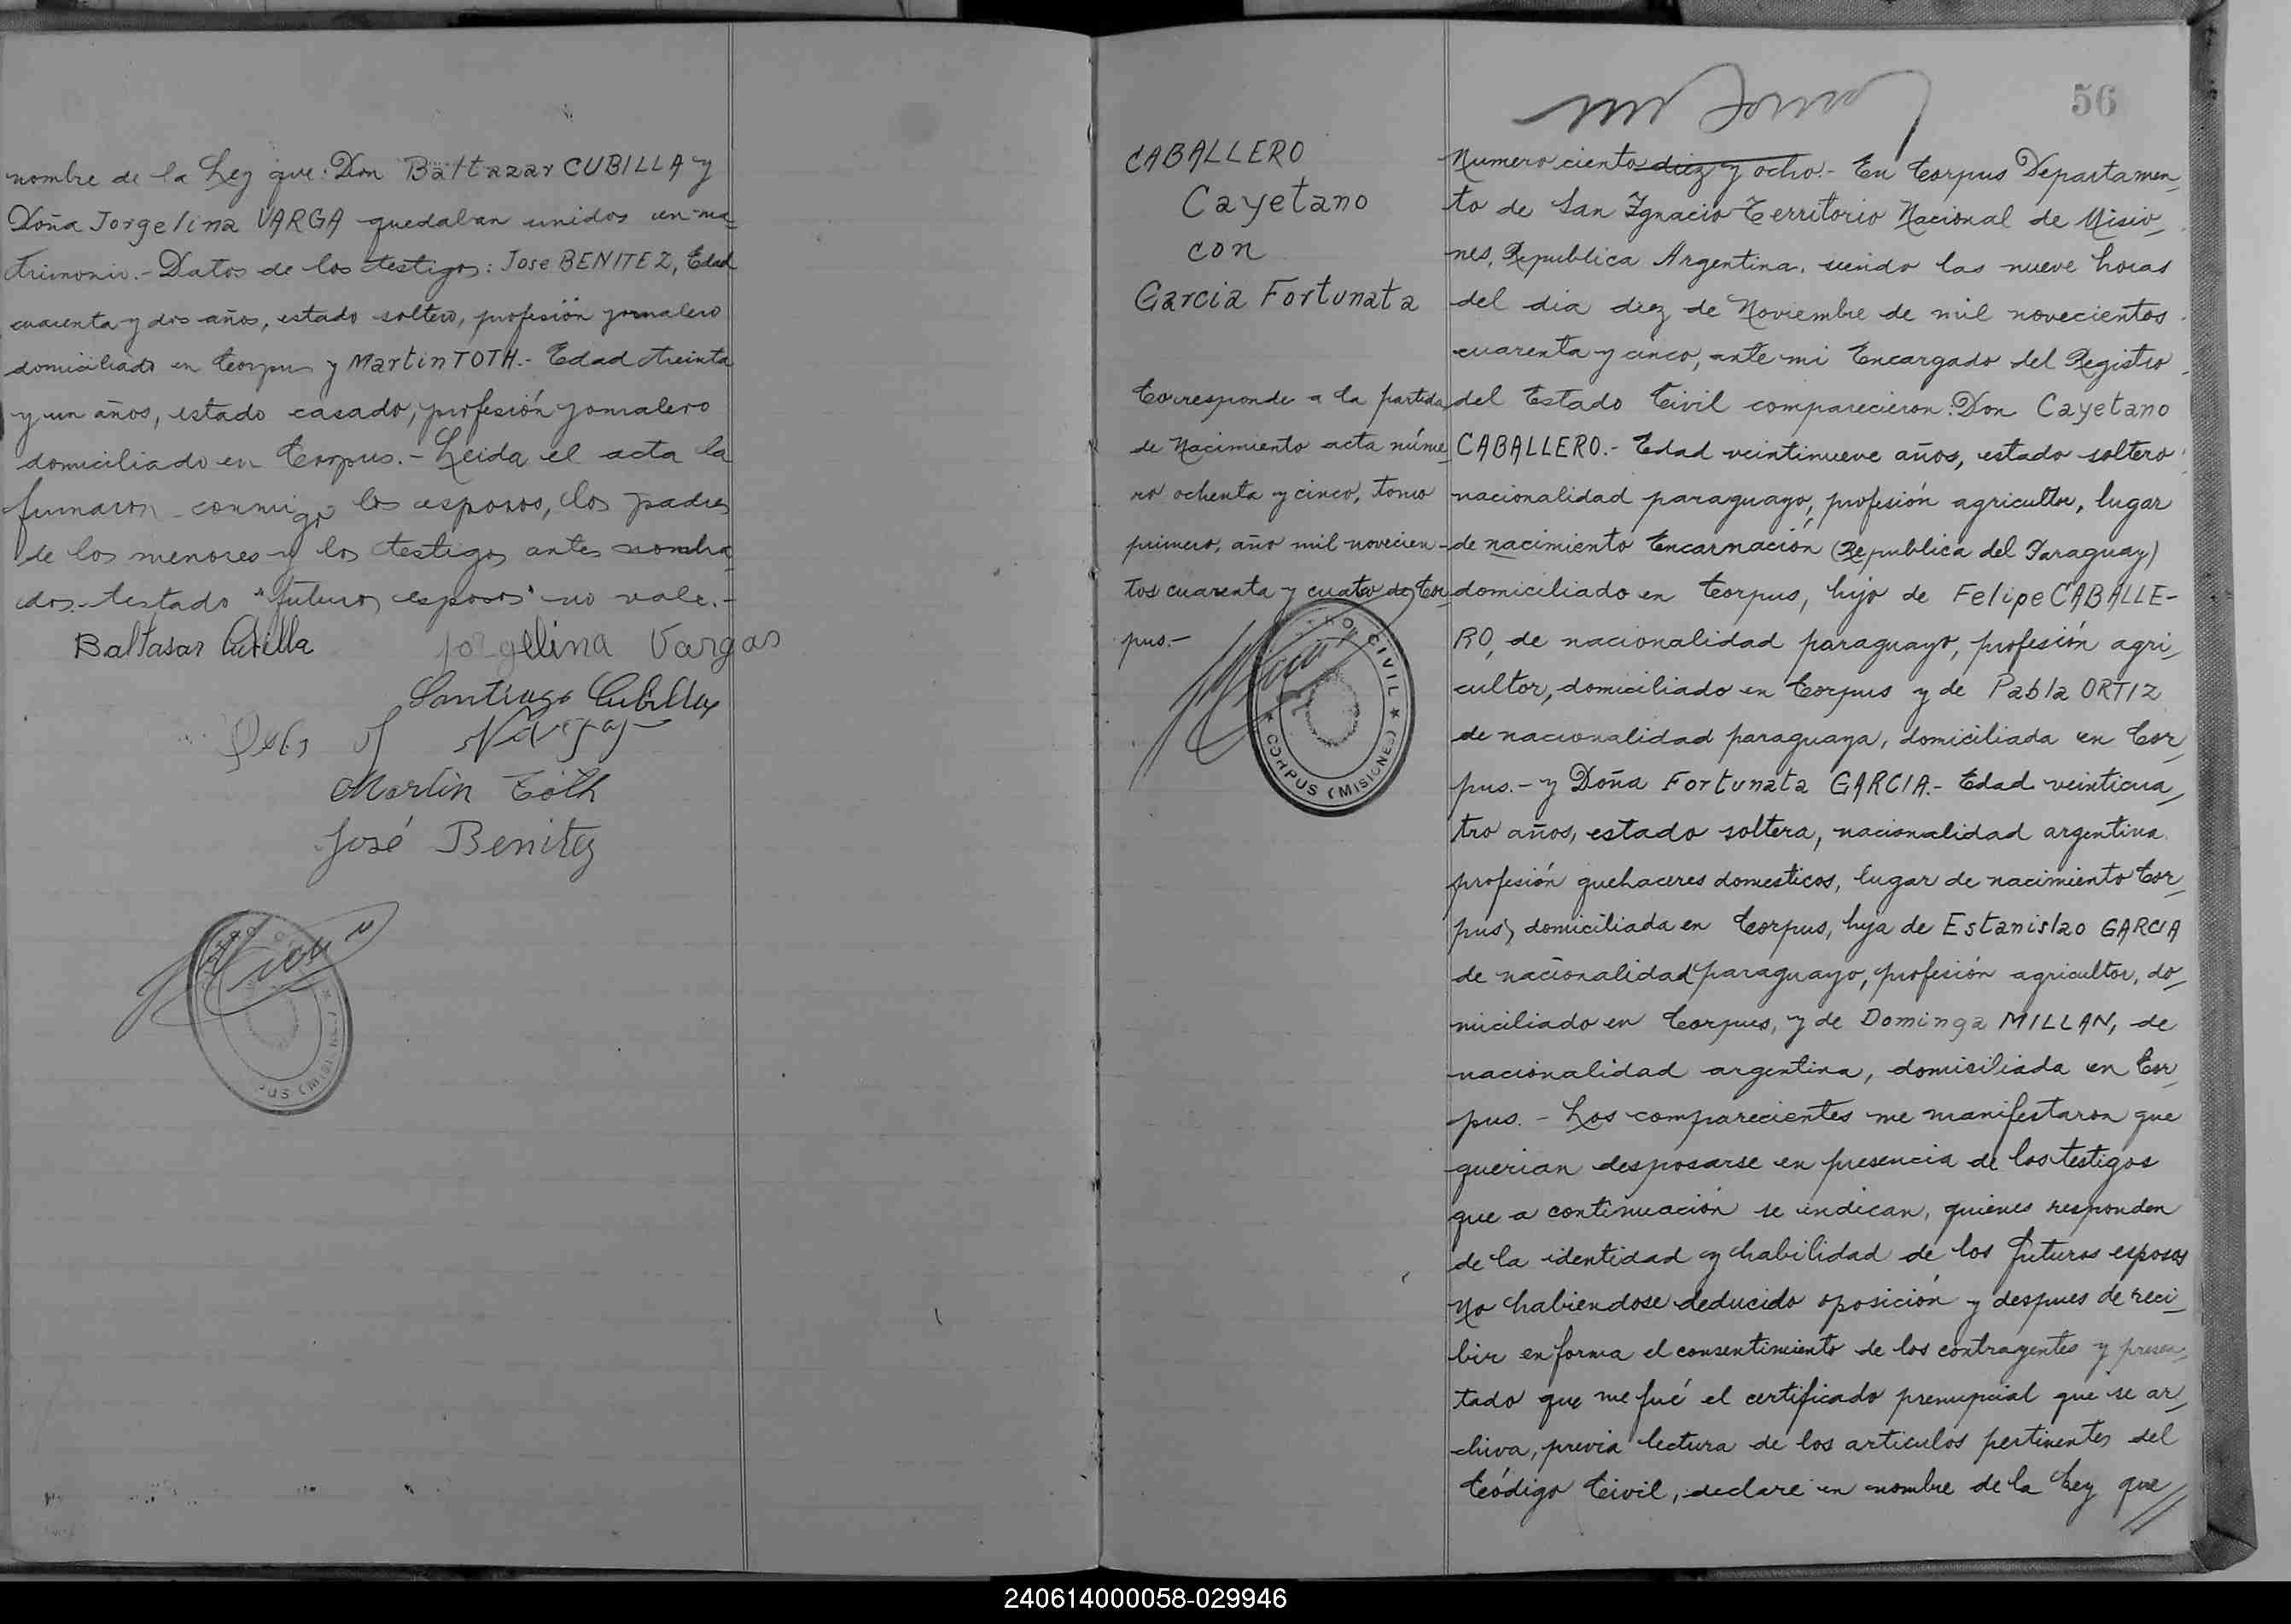 nombre de la Ley que: Don Baltazar CUBILLA y
Doña Jorgelina VARGA quedaban unidos en ma-
trimonio.- Datos de los testigos: Jose BENITEZ, Edad
cuarenta y dos años, estado soltero, profesión jornalero
domiciliado en Corpus y Martin TOTH.- Edad treinta
y un años, estado casado, profesión jornalero
domiciliado en Corpus.- Leida el acta la
firmaron conmigo los esposos, los padres
de los menores y los testigos antes nombra-
dos.- testado "futuros esposos" no vale.-
Baltasar Cubilla
Jorgelina Vargas
Santiago Cubilla
Martin Tóth
José Benitez
56
CABALLERO
Cayetano
con
Garcia Fortunata
Corresponde a la partida
de Nacimiento acta núme-
ro ochenta y cinco, tomo
primero, año mil novecien-
tos cuarenta y cuatro de Cor-
pus.-
CIVIL ★
★ CORPUS (MISIONES)
Numero ciento diez y ocho.- En Corpus Departamen-
to de San Ignacio Territorio Nacional de Misio-
nes, Republica Argentina, siendo las nueve horas
del dia diez de Noviembre de mil novecientos
cuarenta y cinco, ante mi Encargado del Registro
del Estado Civil comparecieron: Don Cayetano
CABALLERO.- Edad veintinueve años, estado soltero
nacionalidad paraguayo, profesión agricultor, lugar
de nacimiento Encarnación (Republica del Paraguay)
domiciliado en Corpus, hijo de Felipe CABALLE-
RO, de nacionalidad paraguayo, profesión agri-
cultor, domiciliado en Corpus y de Pabla ORTIZ
de nacionalidad paraguaya, domiciliada en Cor-
pus.- y Doña Fortunata GARCIA.- Edad veinticua-
tro años, estado soltera, nacionalidad argentina
profesión quehaceres domesticos, lugar de nacimiento Cor-
pus, domiciliada en Corpus, hija de Estanislao GARCIA
de nacionalidad paraguayo, profesión agricultor, do-
miciliado en Corpus, y de Dominga MILLAN, de
nacionalidad argentina, domisiliada en Cor-
pus.- Los comparecientes me manifestaron que
querian desposarse en presencia de los testigos
que a continuación se indican, quienes responden
de la identidad y habilidad de los futuros esposos
No habiendose deducido oposición y despues de reci-
bir en forma el consentimiento de los contrayentes y presen-
tado que me fué el certificado prenupcial que se ar-
chiva, previa lectura de los articulos pertinentes del
Código Civil, declare en nombre de la Ley que //
240614000058-029946